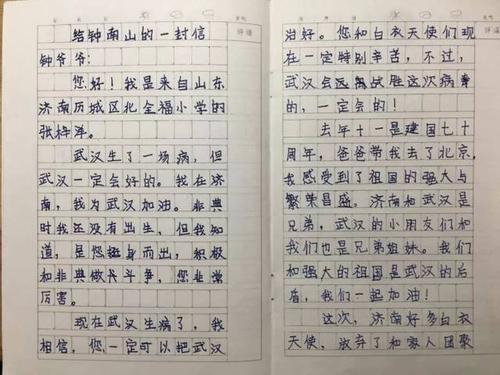 给钟南山的一封信
钟爷爷：
您好！我是来自山东
济南历城区北全福小学的
张梓洋。
武汉生了一场病，但
武汉一定会好的。我在济
南，我为武汉加油。非典
时我还没有出生，但我知
道，是您挺身而出，积极
和非典做斗争，您非常
厉害。
现在武汉生病了，我
相信，您一定可以把武汉
评语
治好。您和白衣天使们现
在一定特别辛苦，不过，
武汉会战胜这次病
的，一定会的！
去年十一是建国七十
周年，爸爸带我去了北京，
我感受到了祖国的强大与
繁荣昌盛，济南和武汉是
兄弟，武汉的小朋友们和
我们也是兄弟姐妹。我们
和强大的祖国是武汉的后
盾，我们一起加油！
这次，济南好多白衣
天使，放弃了和家人团聚
评语